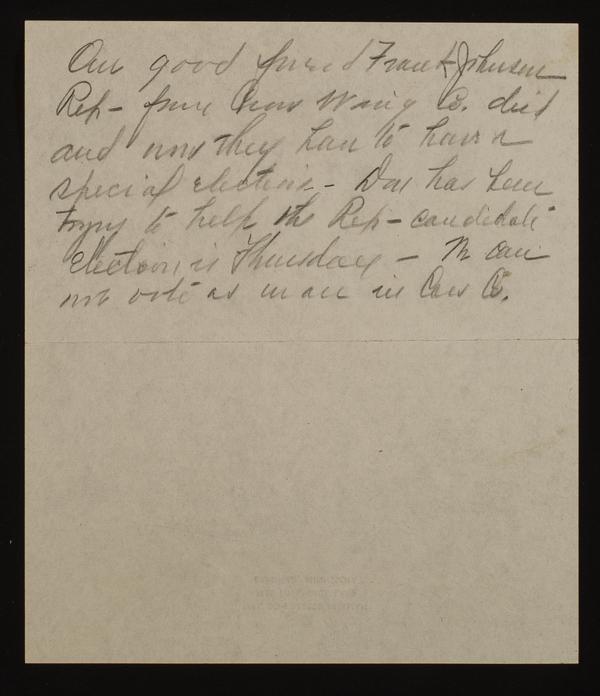 Our good friend Frank Johnson
Rep - from Crow Wing Co. died
and now they have to have a
special election - Don has been
trying to help the Rep - candidate
election is Thursday - We can
not vote as we are in Cass Co.